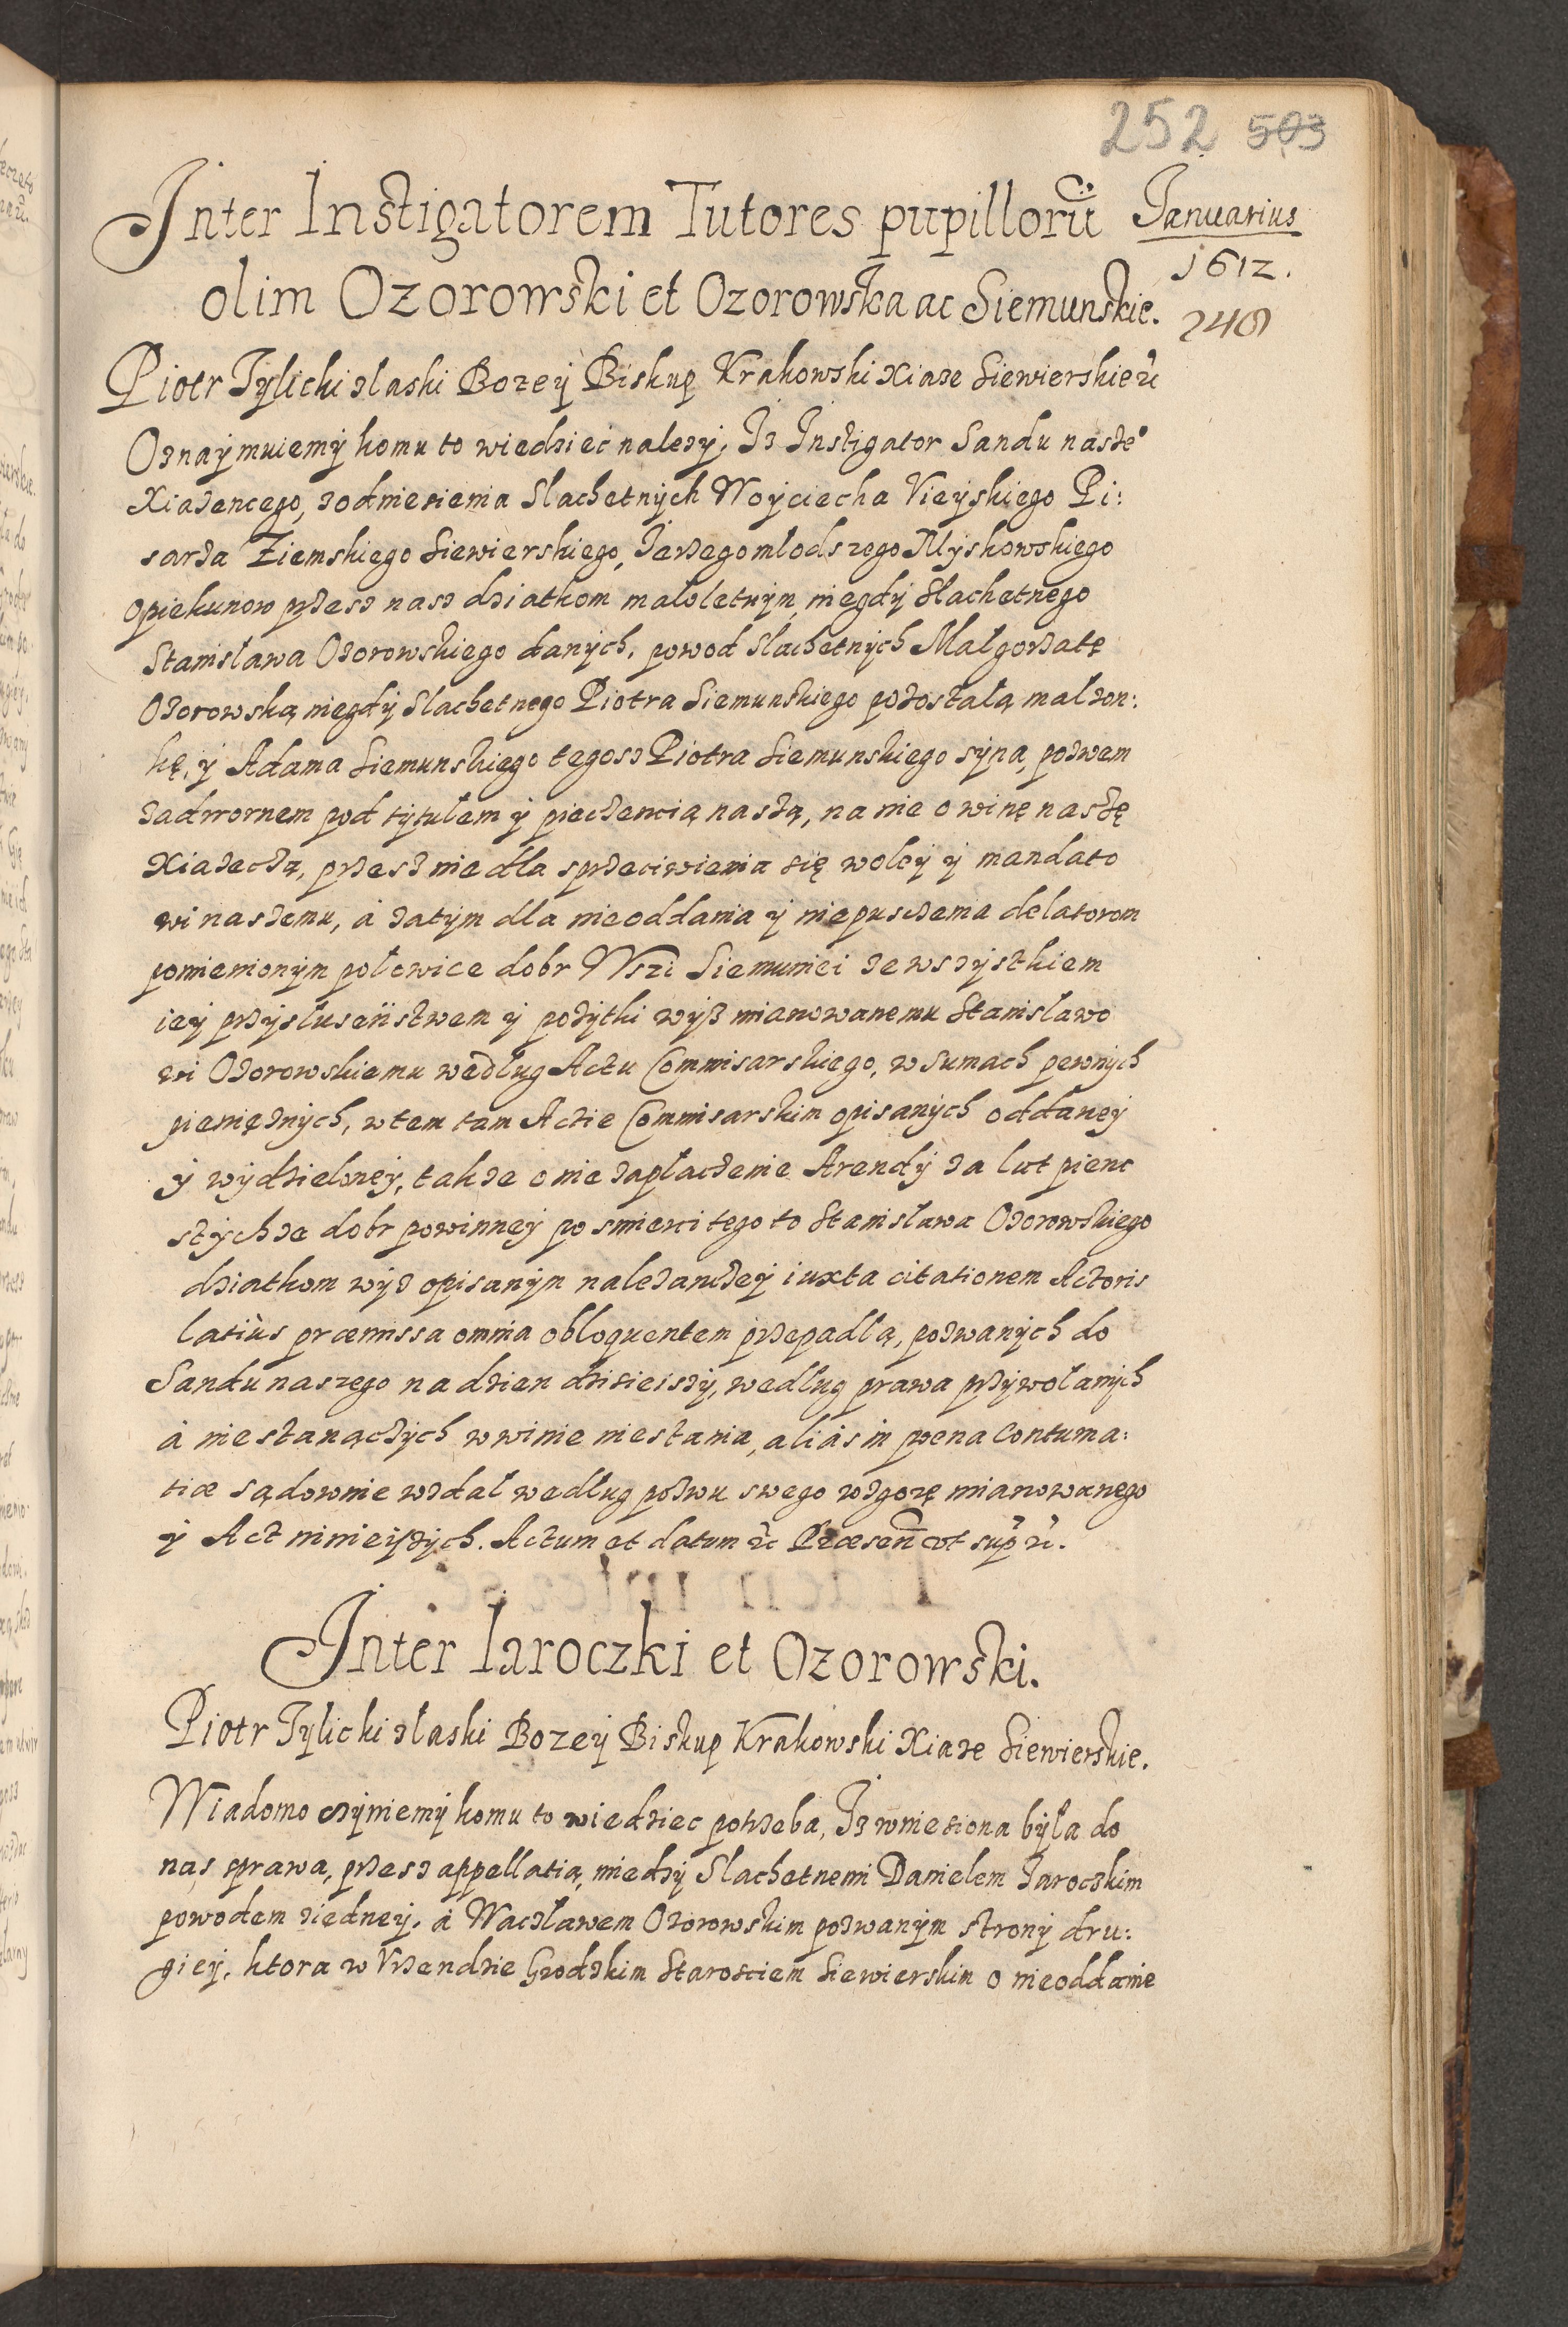 252 503
Inter Instigatorem Tutores pupillorũ
Januarius
1612.
249
olim Ozorowski et Ozorowska ac Siemunskie.
Piotr Tylicki zlaski Bozey Biskup Krakowski Xiaze Siewierskie &c
Oznaymuiemy komu to wiedziec nalezy, Iz Instigator Sandu nasze°
Xiazencego, zodniesienia Slachetnych Woyciecha Vieyskiego Pi:
sarza Ziemskiego Siewierskiego, Jerzego mlodszego Myskowskiego
opiekunow przesz nasz dziatkom maloletnym niegdy Slachetnego
Stanislawa Ozorowskiego danych, powod Slachetnych Małgorzatę
Ozorowską niegdy Slachetnego Piotra Siemunskiego pozostalą malzon:
kę, y Adama Siemunskiego tegosz Piotra Siemunskiego syna, pozwem
zadwornem pod tytułem y pieczencią naszą, na nie o winę naszę
Xiazeczą, przesz nie dla sprzeciwienia się woley y mandato
wi naszemu, à zatym dla nieoddania y niepusczenia delatorom
pomienionym polowice dobr Wszi Siemuniei ze wszystkiem
iey przysluseństwem y pozytki wyß mianowanemu Stanislawo
wi Ozorowskiemu według Actu Commisarskiego, w sumach pewnych
pieniężnych, w tem tam Actie Commisarskim opisanych oddaney
y wydzieloney, takze o nie zapłaczenie Arendy za lat pienc
stych ze dobr powinney po smierci tego to Stanislawa Ozorowskiego
dziatkom wyz opisanym nalezanczey iuxta citationem Actoris
latiùs præmissa omnia obloquentem przepadlą, pozwanych do
Sandu naszego na dzien dzisieiszy, wedlug prawa przywolanych
à niestanączych w winie niestania, aliàs in poena Contuma:
tiæ sądownie wzdal według pozwu swego wzgorę mianowanego
y Act ninieyszych. Actum et datum &c Præsen̄ ut sup̃ &c.
Inter Iaroczki et Ozorowski.
Piotr Tylicki zlaski Bozey Biskup Krakowski Xiaze Siewierskie.
Wiadomo czyniemy komu to wiedziec potrzeba, Iz wniesiona była do
nas sprawa, przesz appellatią, miedzy Slachetnemi Danielem Jaroczkim
powodem ziedney, à Waczławem Ozorowskim pozwanym strony dru:
giey, ktora w Vrzendzie Grodzkim Starosciem Siewierskim o nieoddanie